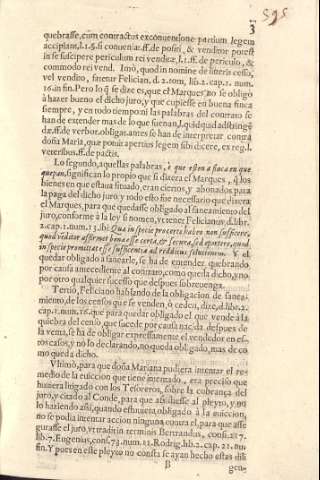 595
3
quebrasse, cum contractus ex conuentione partium legem
accipiant, l.1.§.si conuenit.ff.depositi, & venditor potest
in se suscipere periculum rei venditæ, l.1.ff. de periculo, &
commodo rei vend. Imò, quod in nomine de literis cesso,
vel vendito, fatetur Felician. d 2. tom, lib.2. cap.11. num.
16. in fin. Pero lo q̃ se dize es, que el Marques, no se obligò
à hazer bueno el dicho juro, y que cupiesse en buena finca
siempre, y en todo tiempo: ni las palabras del contrato se
han de extender mas de lo que suenan, l. quidquid adstringẽ
dæ.ff.de verbor. obligat. antes se han de interpretar contra
doña Maria, que potuit apertius legem sibi dicere, ex reg. l.
veteribus.ff.de pactis.
Lo segundo, aquellas palabras, è que esten à finca en que
quepan, significan lo propio que si dixera el Marques, q̃ los
bienes en que estaua situado, eran ciertos, y abonados para
la paga del dicho juro y todo esto fue necessario que dixera
el Marques, para que quedasse obligado al saneamiento del
juro, conforme à la ley si nomen, vt tenet Felicianus d. libr.
2. cap. 1. num. 15. ibi: Qua in specie procerto haben non sufficere,
quod reditor affirmet bona esse certa, & secura, sed oportere, quod
in specie promittat esse sufficentia ad redditus solutionem. Y el
quedar obligado à sanearle, se ha de entender quebrando
por causa antecedente al contrato, como queda dicho, y no
por otro qualquier sucesso que despues sobreuenga.
Tercio, Feliciano hablando de la obligacion de sanea-
miento, de los censos que se venden, ò ceden, dize, d. lib. 2.
cap. 1. num. 16. que para quedar obligado el que vende à la
quiebra del censo, que sucede por causa nacida despues de
la venta, se ha de obligar expressamente el vendedor en es-
tos casos, y no lo declarando, no queda obligado, mas de co
mo queda dicho.
Vltimò, para que doña Mariana pudiera intentar el re-
medio de la euiccion que tiene intentado, era preciso que
huuiera litigado con los Tesoreros, sobre la cobrança del
juro, y citado al Conde, para que assistiesse al pleyto, y no
lo haziendo assi, quando estuuiera obligado à la euiccion,
no se pudo intentar accion ninguna contra el, para que asse
gurasse el juro, vt tradit in terminis Bertrandus, cons. 217.
lib. 7. Eugenius, cons. 73. num. 11. Rodrig. lib. 2. cap. 21. nu.
fin. Y pues en este pleyto no consta se ayan hecho estas dili
B
gen-